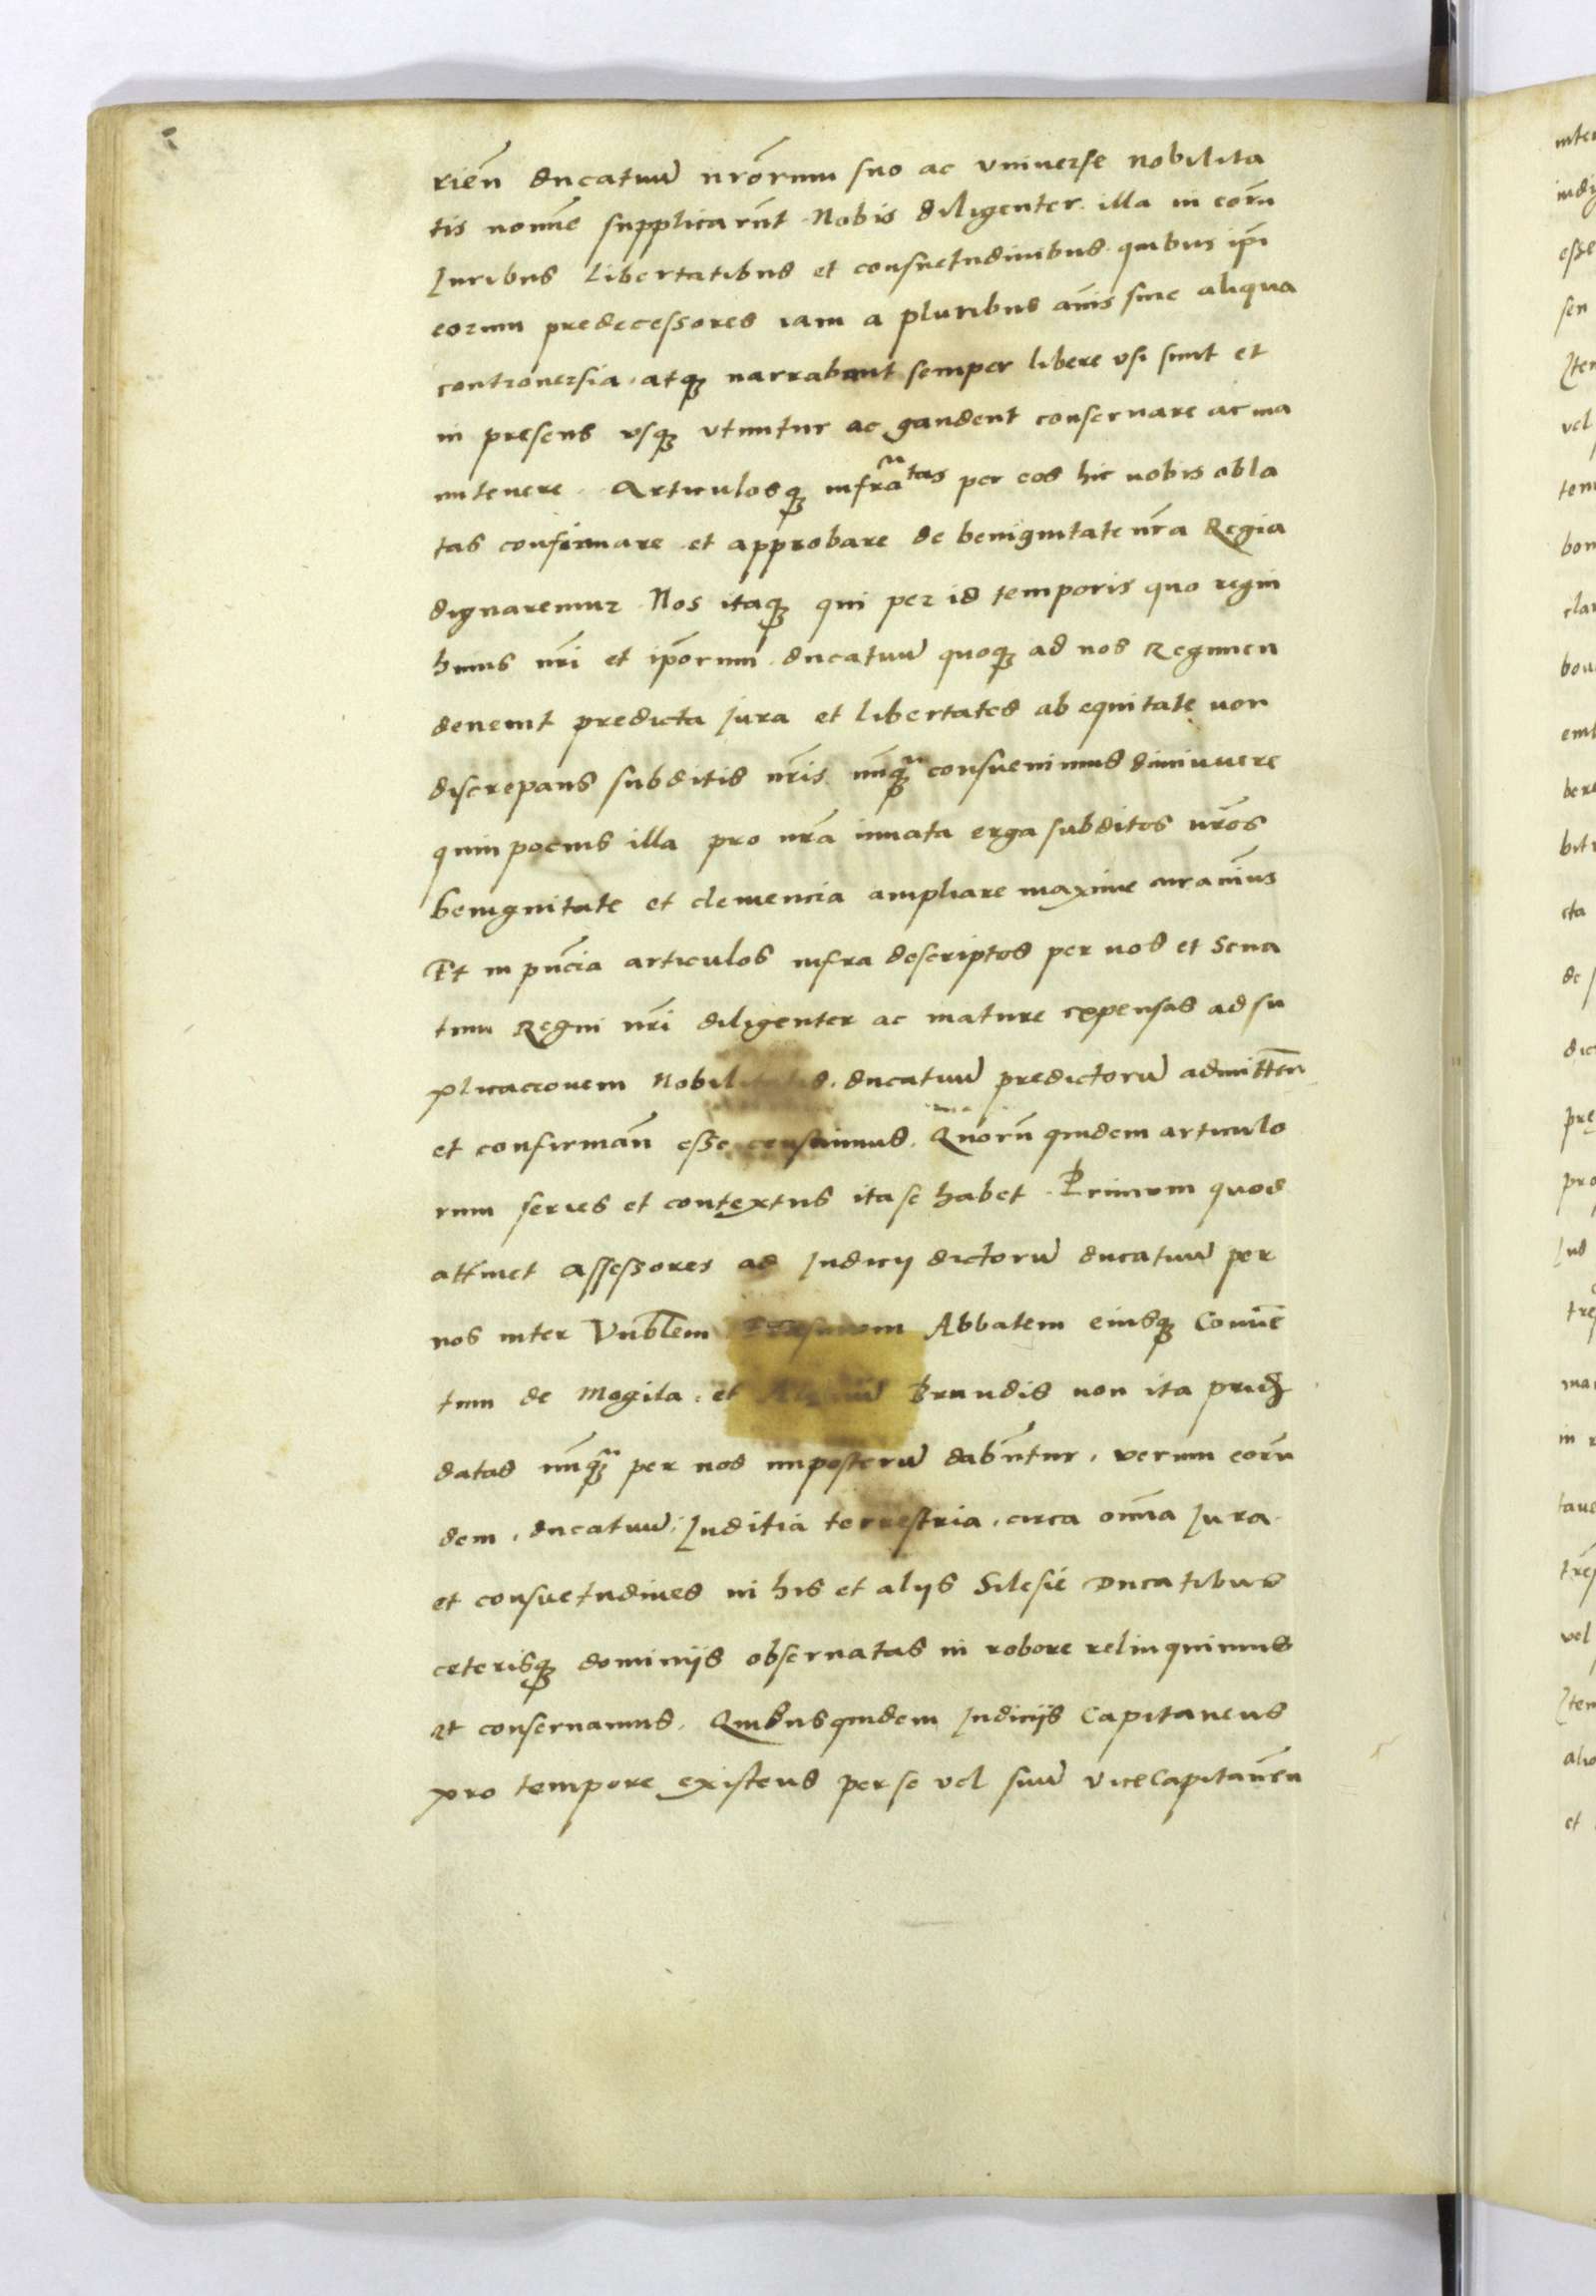 rien̄ ducatuū nr̄orum suo ac vniuerse nobilita
tis nomīe supplicarūt Nobis diligenter illa in eorū
Juribus libertatibus et consuetudinibus quibus ip̄i
eorum predecessores iam a pluribus an̄is sine aliqua
controuersia atqꝫ narrabant semper libere vsi sunt et
in presens vsqꝫ vtuntur ac gaudent conseruare ac ma
nutenere. Articulosqꝫ infra tas per eos hic nobis obla
tas confirmare et approbare de benignitate nr̄a Regia
dignaremur. Nos itaqꝫ qui per id temporis quo regni
huius nr̄i et ip̄orum ducatuū quoqꝫ ad nos Regimen
deuenit predicta Jura et libertates ab equitate non
discrepans subditis nr̄is nūqꝫ consueuimus diminuere
quin pocius illa pro nr̄a innata erga subditos nr̄os
benignitate et clemencia ampliare maxime curauim̄us
Et in pn̄cia articulos infra descriptos per nos et Sena
tum Regni nr̄i diligenter ac mature expensas ad su
plicacionem Nobilitatis ducatuū predictorū admitten̄
et confirman̄ esse censuimus. Quorū quidem articulo
rum series et contextus ita se habet. Primum quod
attinet assessores ad Judicij dictorū ducatuū per
nos inter Vnb̄lem Abbatem eiusqꝫ Conuē
tum de Mogila, et Brandis non ita prid
datas nūqꝫ per nos imposterū dabūtur, verum eorū
dem, ducatuū, Juditia terrestria, circa om̄ia Jura
et consuetudines in his et alijs Silesie Ducatibus
ceterisqꝫ dominijs obseruatas in robore relinquimus
et conseruamus. Quibusquidem Judicijs Capitaneus
pro tempore existens per se vel suū vicecapitan̄eu